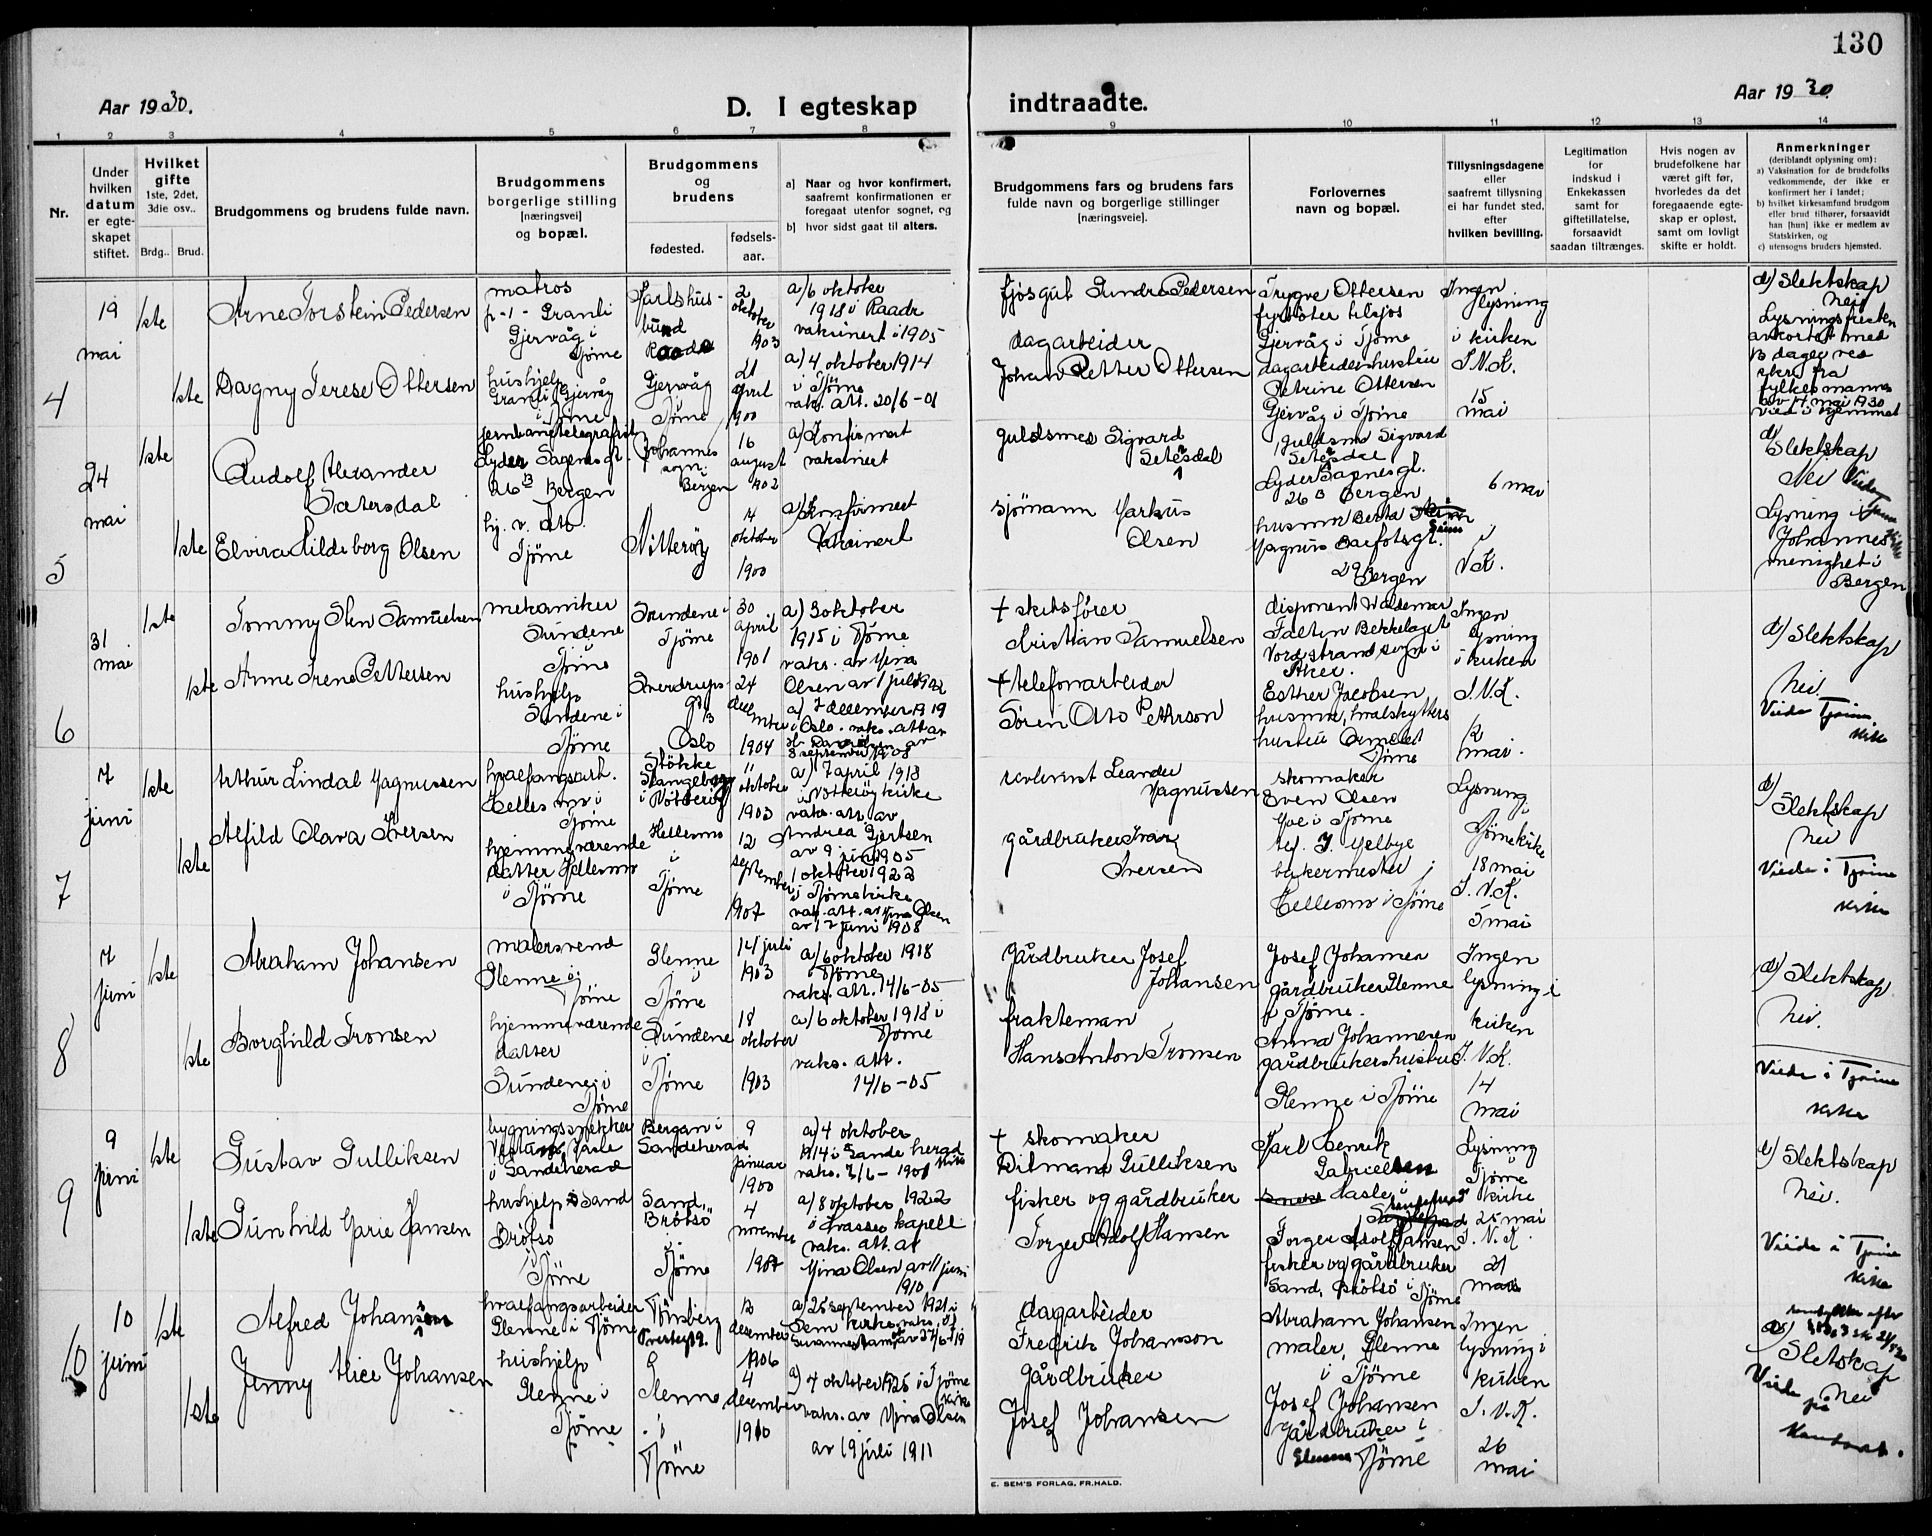 130
Aar 1930.
D. I egteskap
indtraadte.
Aar 1930.
1 2 3 4 5 6 7 8 9 10 11 12 13 14
Nr.
Under hvilken datum er egteskapet stiftet.
Hvilket gifte 1ste, 2det, 3die osv..
Brdg.. Brud.
Brudgommens og brudens fulde navn.
Brudgommens borgerlige stilling [næringsvei] og bopæl.
Brudgommens og brudens
fødested.
fødsels-aar.
a] Naar og hvor konfirmert, saafremt konfirmationen er foregaat utenfor sognet, og
b] hvor sidst gaat til alters.
Brudgommens fars og brudens fars fulde navn og borgerlige stillinger [næringsveie].
Forlovernes navn og bopæl.
Tillysningsdagene eller saafremt tillysning ei har fundet sted, efter hvilken bevilling.
Legitimation for indskud i Enkekassen samt for giftetillatelse, forsaavidt saadan tiltrænges.
Hvis nogen av brudefolkene har været gift før, hvorledes da det foregaaende egteskap er opløst, samt om lovligt skifte er holdt.
Anmerkninger (deriblandt oplysning om):
a) Vaksination for de brudefolks vedkommende, der ikke er konfirmert her i landet;
b) hvilket kirkesamfund brudgom eller brud tilhører, forsaavidt han [hun] ikke er medlem av Statskirken, og
c) utensogns bruders hjemsted.
4
19
mai
1ste
Arne Torstein Pedersen
matros
Granli
Gjervåg i
Tjøme
2
oktober
1903
a) 6 oktober
1918 i Raade
vaksinert i 1905
dagarbeider
Trygve Ottersen
fyrbøter tilsjøs
Gjervåg i Tjøme
Ingen
lysning
i kirken
S.V.K.
15
mai
d) Slektskap
nei
1ste
Dagny Terese Ottersen
hushjelp
Granli Gjervåg
i Tjøme
Gjervåg
Tjøme
21
april
1900
a) 4 oktober 1914
i Tjøme
vaks. att. 20/6-01
Johan Petter Ottersen
dagarbeiders hustru
Petrine Ottersen
Gjervåg i Tjøme
Lysningsfristen
avkortet med
13 dager ved
skriv fra
fylkesmannen
av 17 mai 1930
viet i hjemmet
5
24
mai
1ste
Rudolf Alexander
Sætersdal
jernbanetelegrafist
Lyder Sagensgt.
26 B Bergen
Johannes
sogn.
Bergen
16
august
1902
a) Konfirmert
vaksinert
guldsmed Sigvard
Setesdal
guldsmed Sigvard
Setesdal
Lyder Sagnesgt.
26 B Bergen
6 mai
d)
Slektskap
Nei
1ste
Elvira Hildeborg Olsen
hj. v. dtt.
Tjøme
Nøtterøy
14
oktober
1900
a) Konfirmert
Vaksinert
sjømann Markus
Olsen
husmor Berta
Magnus Barfotsgt.
29 B
Bergen
V.K.
Lysning i
Johannes
menighet i
Bergen
6
31
mai
1ste
Tommy Sten Samuelsen
mekaniker
Sundene
Tjøme
Sundene i
Tjøme
30
april
1901
a) 3 oktober
1915 i Tjøme
vaks. av Mina
Olsen av 1 juli 1902
+ skibsfører
Kristian Samuelsen
disponent Waldemar
Falten Bekkelaget
Nordstrand sogn i
Aker.
Ingen
lysning
i kirken
S.V.K.
12
mai.
d) Slektskap
Nei.
Viede Tjøme
kirke
1ste
Anne Irene Pettersen
hushjelp
Sundene i
Tjøme
Sverdrups
gt.
Oslo
24
desember
1904
a) 7 desember 1919
i Oslo. vaks. att av
8 september 1908
+ telefonarbeider
Søren Otto Petterson
Esther Jacobsen
husmor, hvalskytters
hustru Ormelet
Tjøme
7
7
juni
1ste
Arthur Lindal Magnussen
hvalfangstarb.
Hellesmo i
Tjøme
Stokke
Slangeborg
i Nøtterøy
11
oktober
1903
a) 7 april 1918
i Nøtterøy kirke
vaks. att. av
Andrea Gjertsen
av 9 juni 1905
Leander
Magnussen
skomaker
Even Olsen
Moe i Tjøme
Lysning
i
Tjøme kirke
18 mai
S.V.K.
5 mai
d)
Slektskap
nei
Viede i Tjøme
kirke
1ste
Alfild Olava Iversen
hjemmeværende
datter Hellesmo
i Tjøme
Hellesmo
i
Tjøme
12
september
1907
1 oktober 1922
i Tjøme kirke
vaks. att. av Mina Olsen
av 17 juni 1908
gårdbruker Ivar
Iversen
Melbye
bakermester
Hellesmo i Tjøme
8
7
juni
1ste
Abraham Johansen
malersvend
Glenne i
Tjøme
Glenne
i
Tjøme
14 juli
1903
a) 6 oktober 1918
Tjøme
vaks. att. 14/6-05
gårdbruker Josef
Johansen
Josef Johansen
gårdbruker Glenne
i Tjøme.
Ingen
lysning i
kirken
S.V.K.
14
mai
d) Slektskap
Nei.
Viede i Tjøme
kirke
1ste
Borghild Tronsen
hjemmeværende
datter
Sundene i
Tjøme
Sundene
i
Tjøme
18
oktober
1903
a) 6 oktober 1918 i
Tjøme
vaks. att.
14/6-05
fraktemann
Hans Anton Tronsen
Anna Johannesen
gårdbrukers hustru
Glenne i Tjøme
9
9
juni
1ste
Gustav Gulliksen
bygningssnekker
i Sandeherad
Bergan i
Sandeherad
9
januar
1900
a) 4 oktober
1914 i Sandeherad
vaks. 7/6-1901
+ skomaker
Ditmann Gulliksen
Karl Henrik
Gabrielsen
Hasle i
Lysning
i
Tjøme
kirke
25 mai
S.V.K.
21
mai
d) Slektskap
Nei.
Viede i Tjøme
kirke
1ste
Gunhild Marie Hansen
hushjelp Sand
Brøtsø
i
Tjøme
Sand,
Brøtsø
i
Tjøme
4
november
1907
a) 8 oktober 1922
i kapell
vaks. att. av
Mina Olsen av 11 juni
1910
fisker og gårdbruker
Torger Adolf Hansen
Torger Adolf Hansen
fisker og gårdbruker
Sand, Brøtsø i Tjøme
10
10
juni
1ste
Alfred Johansson
hvalfangstarbeider
Glenne i Tjøme
Tønsberg
12
desember
1906
a) 25 september 1921 i
Sem kirke
dagarbeider
Fredrik Johansson
Abraham Johansen
maler, Glenne
i Tjøme
Ingen
lysning i
kirken
S.V.K.
26
mai
Sletskap
Nei
Viede
på
kontoret.
1ste
Jenny Alice Johansen
hushjelp
Glenne i
Tjøme
Glenne
i
Tjøme
4
desember
1910
a) 4 oktober 1925 i Tjøme
kirke
vaks. av Mina Olsen
av 19 juli 1911
gårdbruker
Josef Johansen
Josef Johansen
Gårdbruker i
Glenne Tjøme
E. SEM'S FORLAG, FR.HALD.